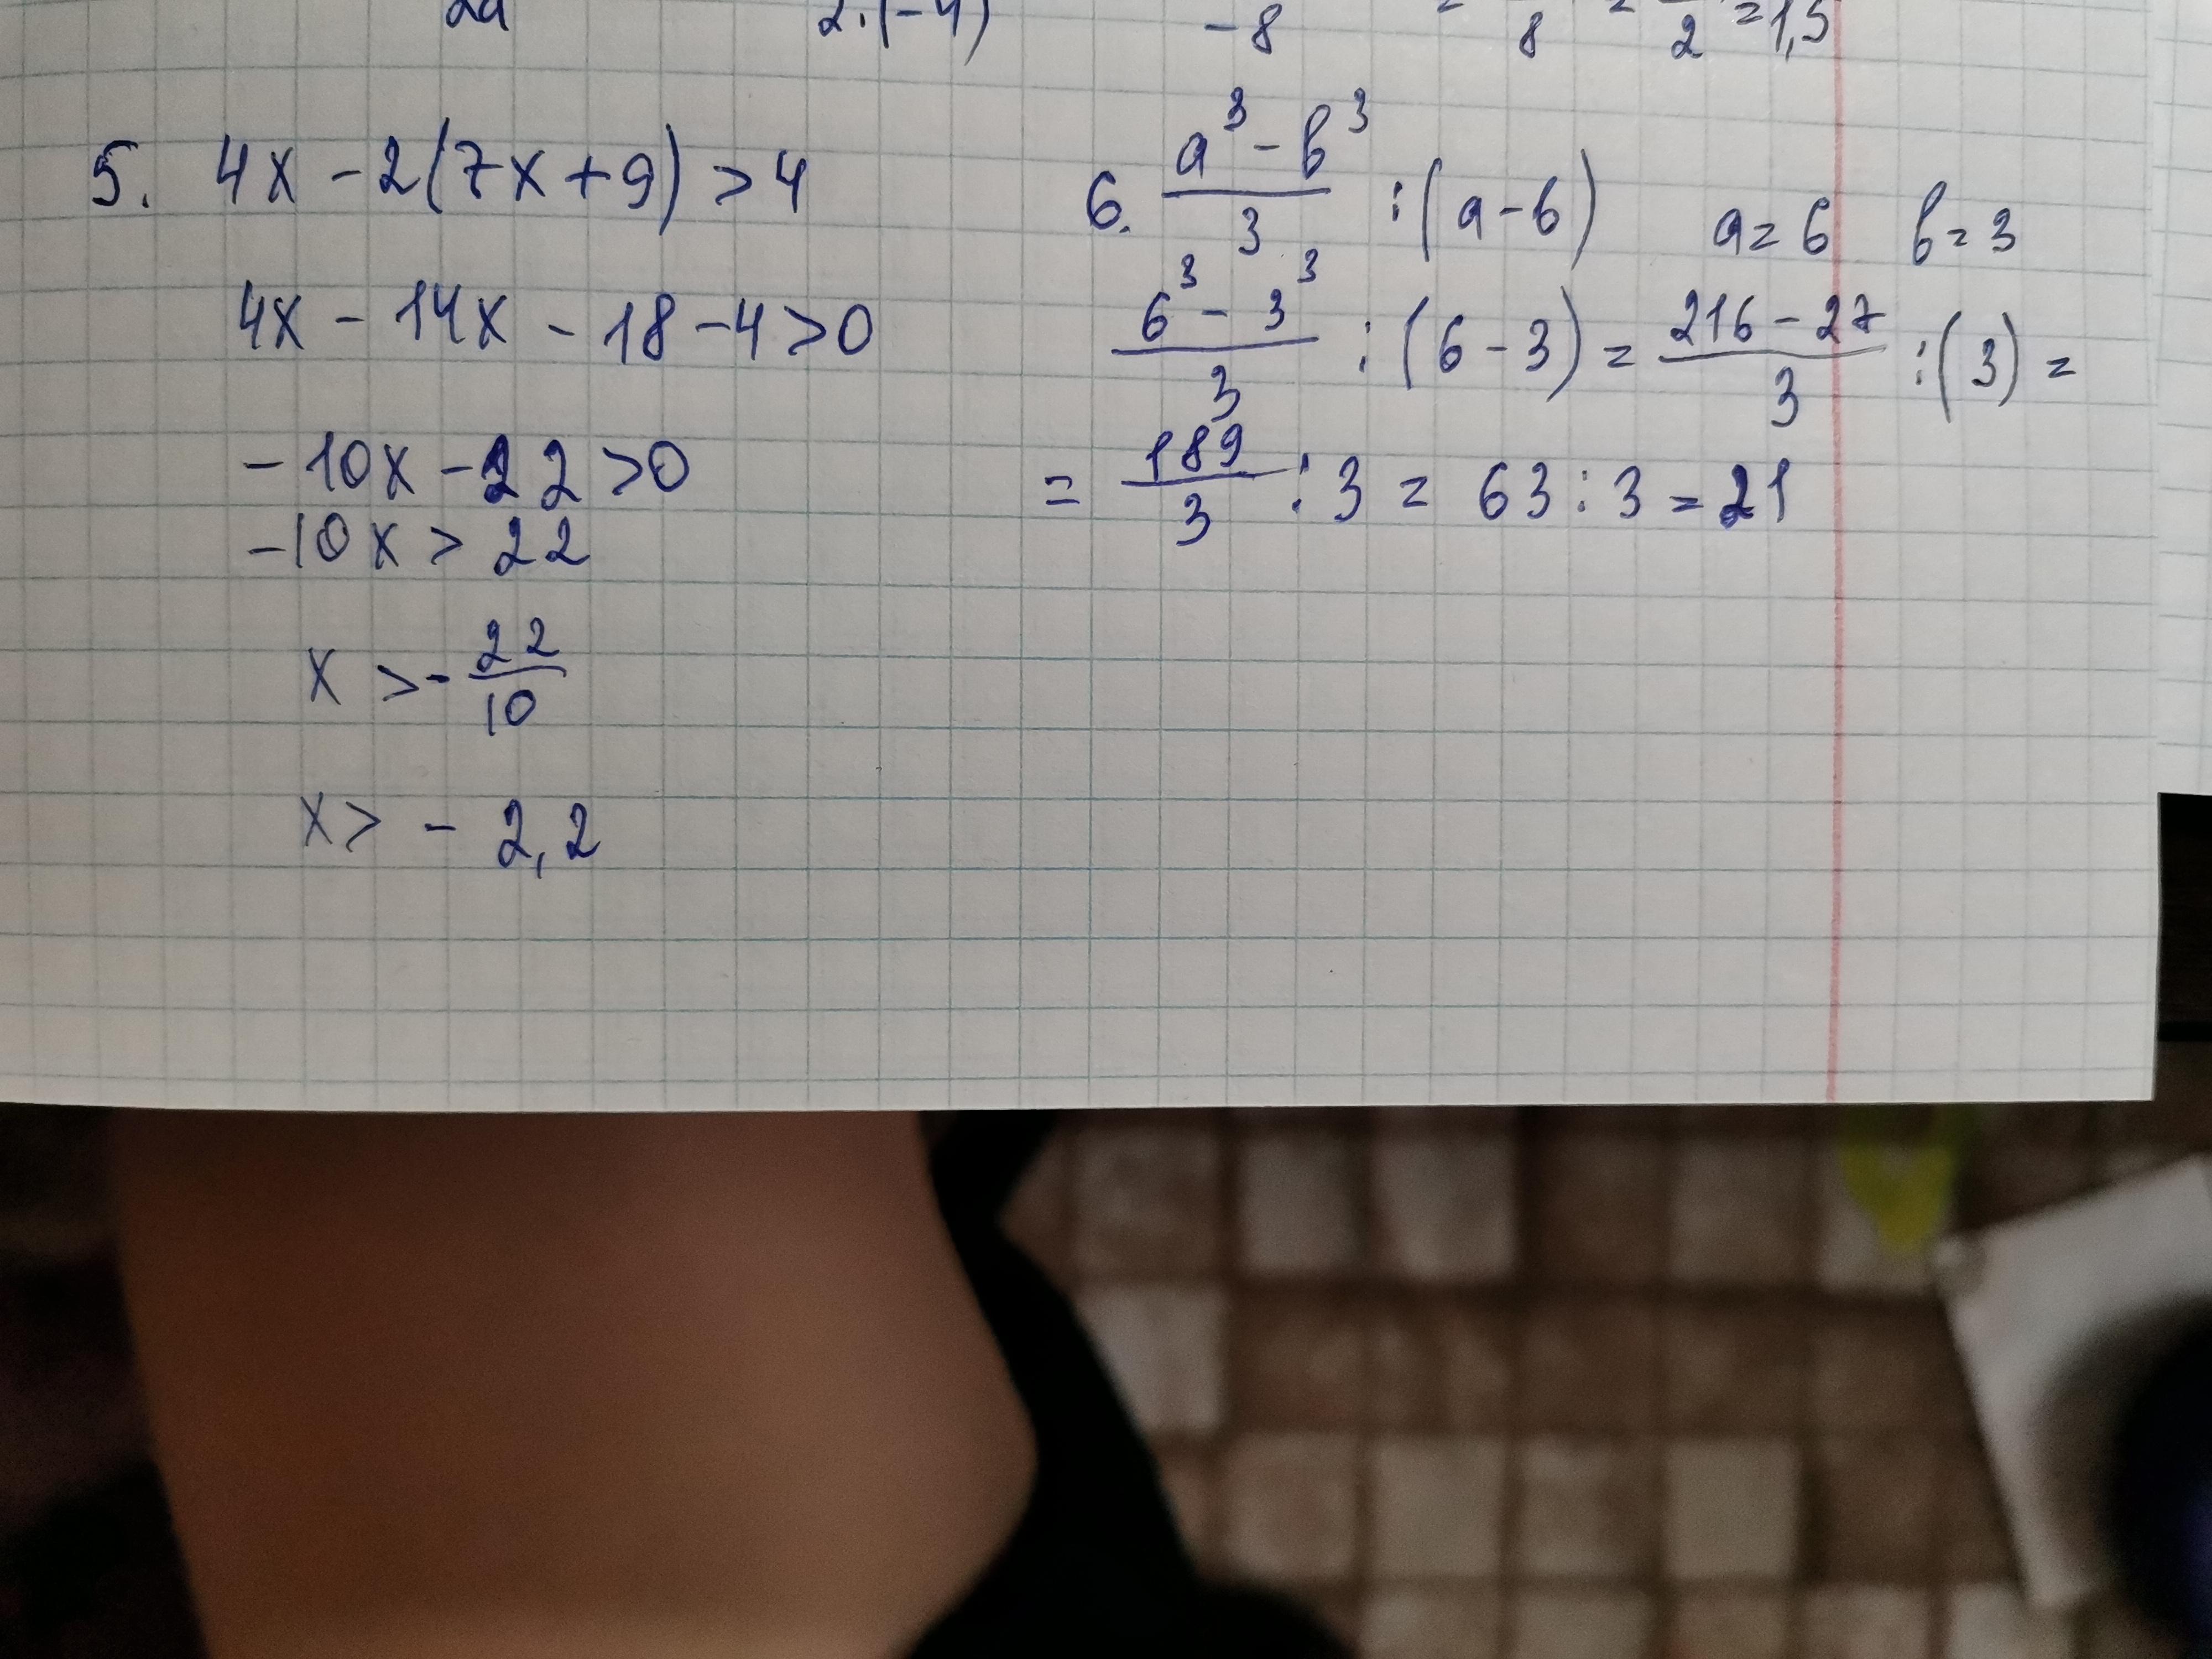 2a 2·(-4) -8 = 8 = 2 = 1,5
5. 4x - 2(7x + 9) > 4
4x - 14x - 18 - 4 > 0
-10x - 22 > 0
-10x > 22
x > - 22/10
x > - 2,2
6. (a³ - b³)/3 : (a - b) a = 6 b = 3
(6³ - 3³)/3 : (6 - 3) = (216 - 27)/3 : (3) =
= 189/3 : 3 = 63 : 3 = 21